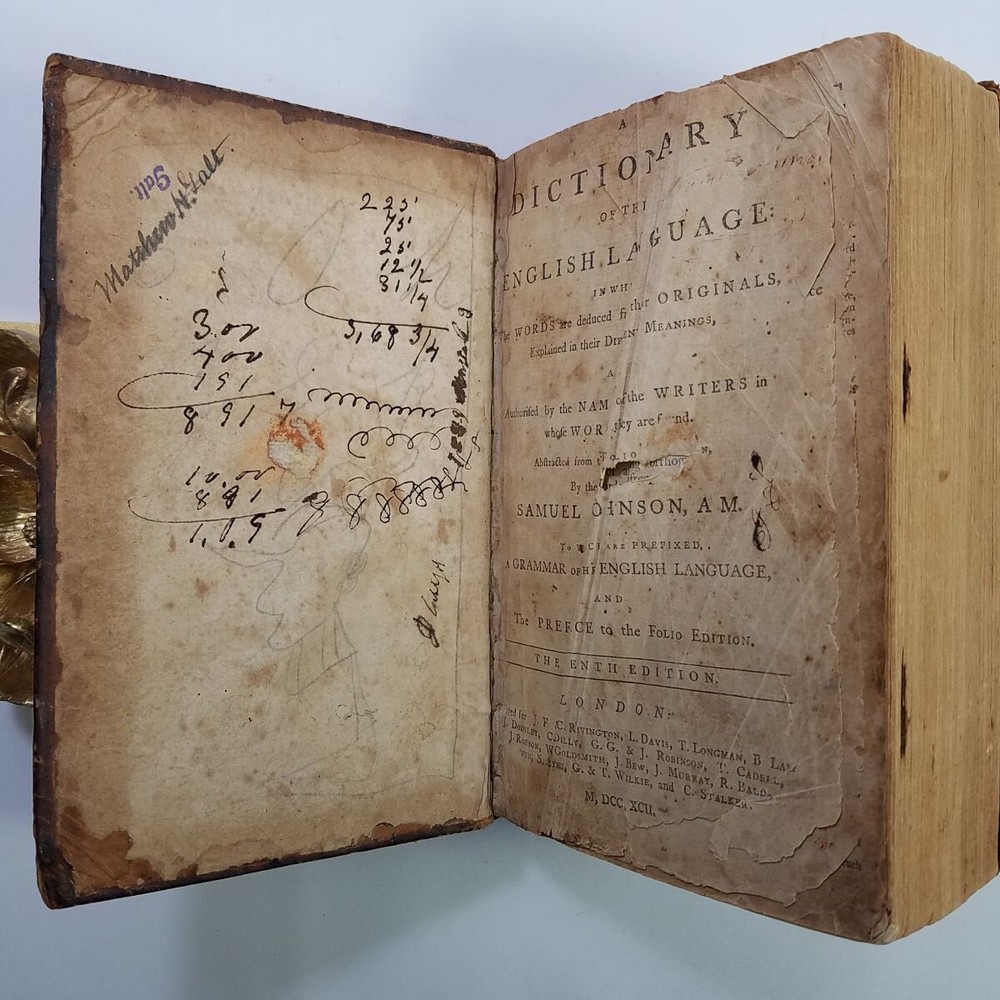 Galt.
Matthew N. Galt.
225
75
25
12 1/2
31 1/4
3,68 3/4
3.00
400
151
8 51
10.00
1.5.1
A
DICTIONARY
OF THE
ENGLISH LANGUAGE:
IN WH
The WORDS are deduced f their ORIGINALS,
Explained in their DIF EN MEANINGS,
A
Authorised by the NAM of the WRITERS in
whose WOR they are f und.
Abstracted from FOLIO N,
By the
SAMUEL OHNSON, A M.
To W CH ARE PREFIXED,
A GRAMMAR OF HE ENGLISH LANGUAGE,
AND
The PREF CE to the FOLIO EDITION.
THE ENTH EDITION.
LONDON:
ted for J. F. C. RIVINGTON, L. DAVIS, T. LONGMAN, B LAW
J. DODSLEY, C DILLY, G. G. & J. ROBINSON, T. CADELL,
J. ROBSON, W GOLDSMITH, J. BEW, J. MURRAY, R. BALD
S. HAYES, G. & T. WILKIE, and C. STALKER.
M,DCC,XCII.